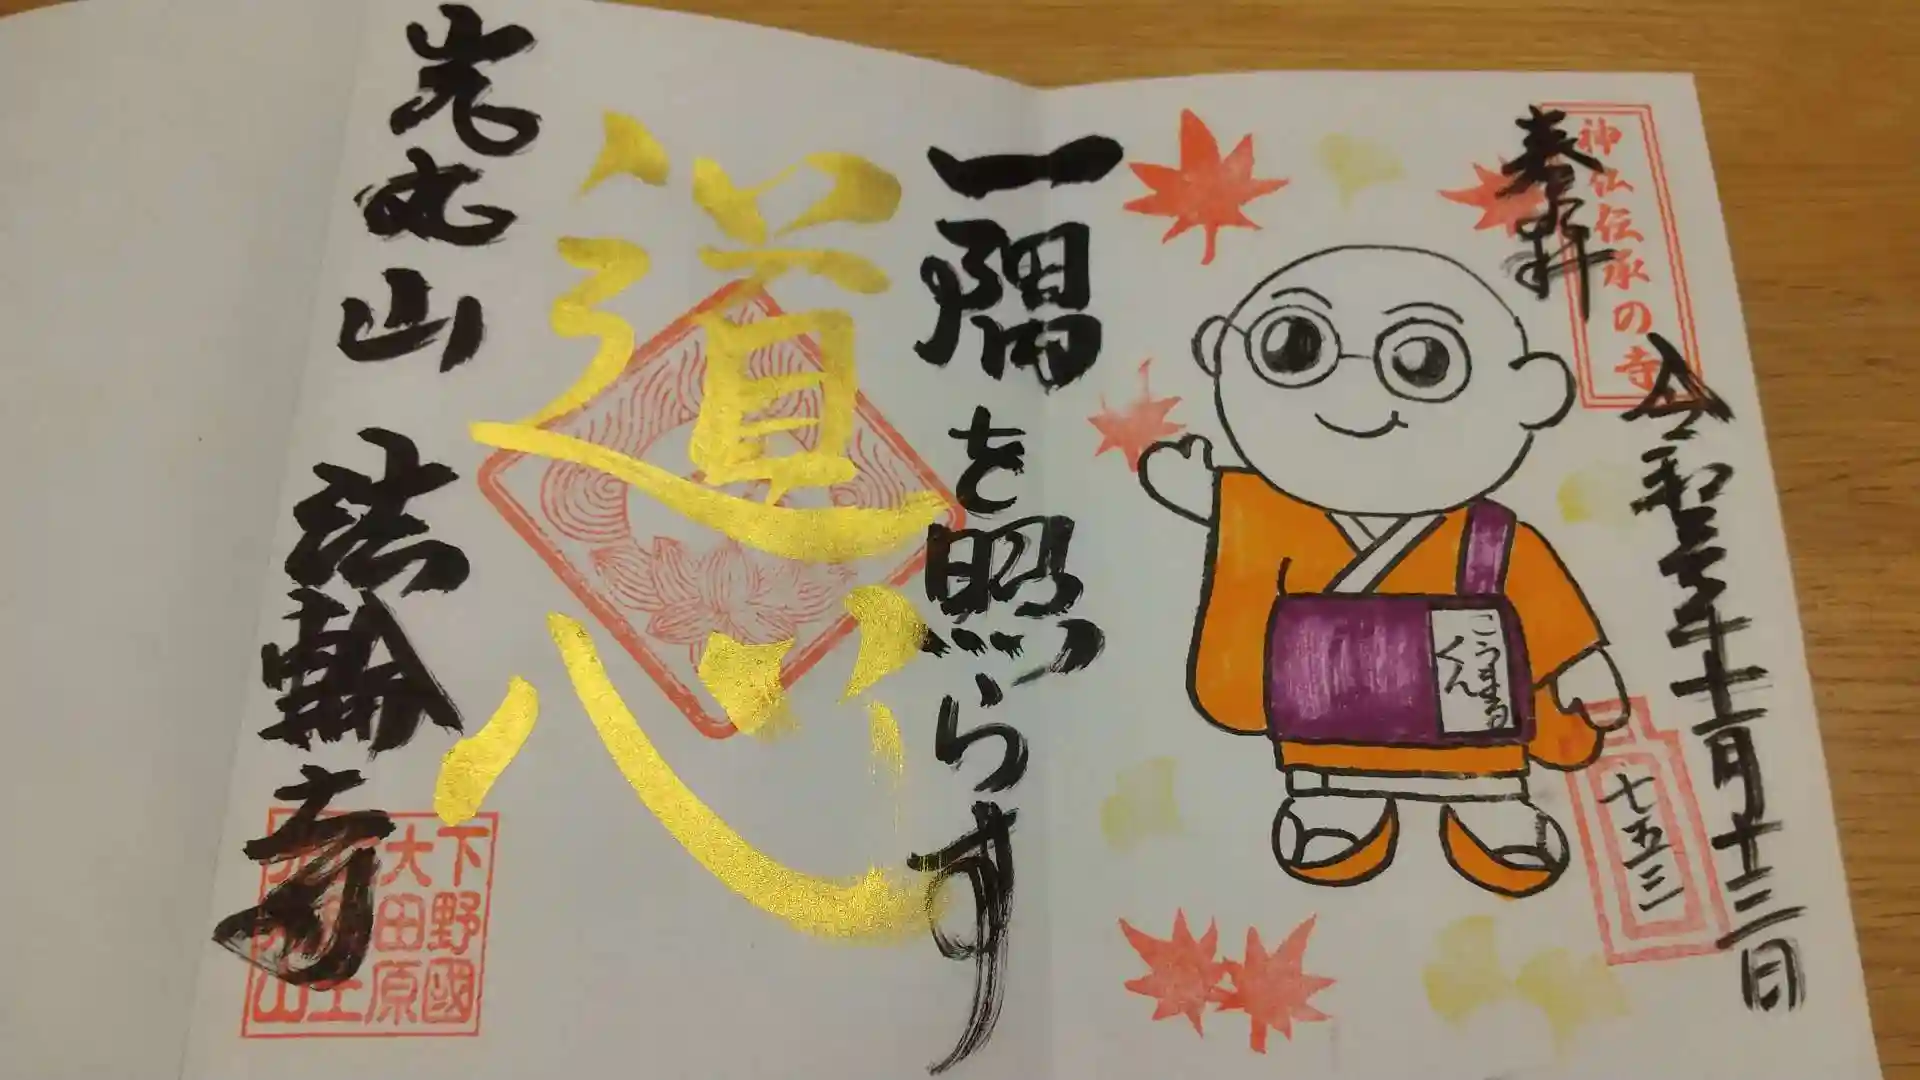 神仏伝承の寺
奉拝
令和五年十一月十三日
七五三
こうまる
くん
一隅を照らす
道心
光丸山 法輪寺
下野國
大田原